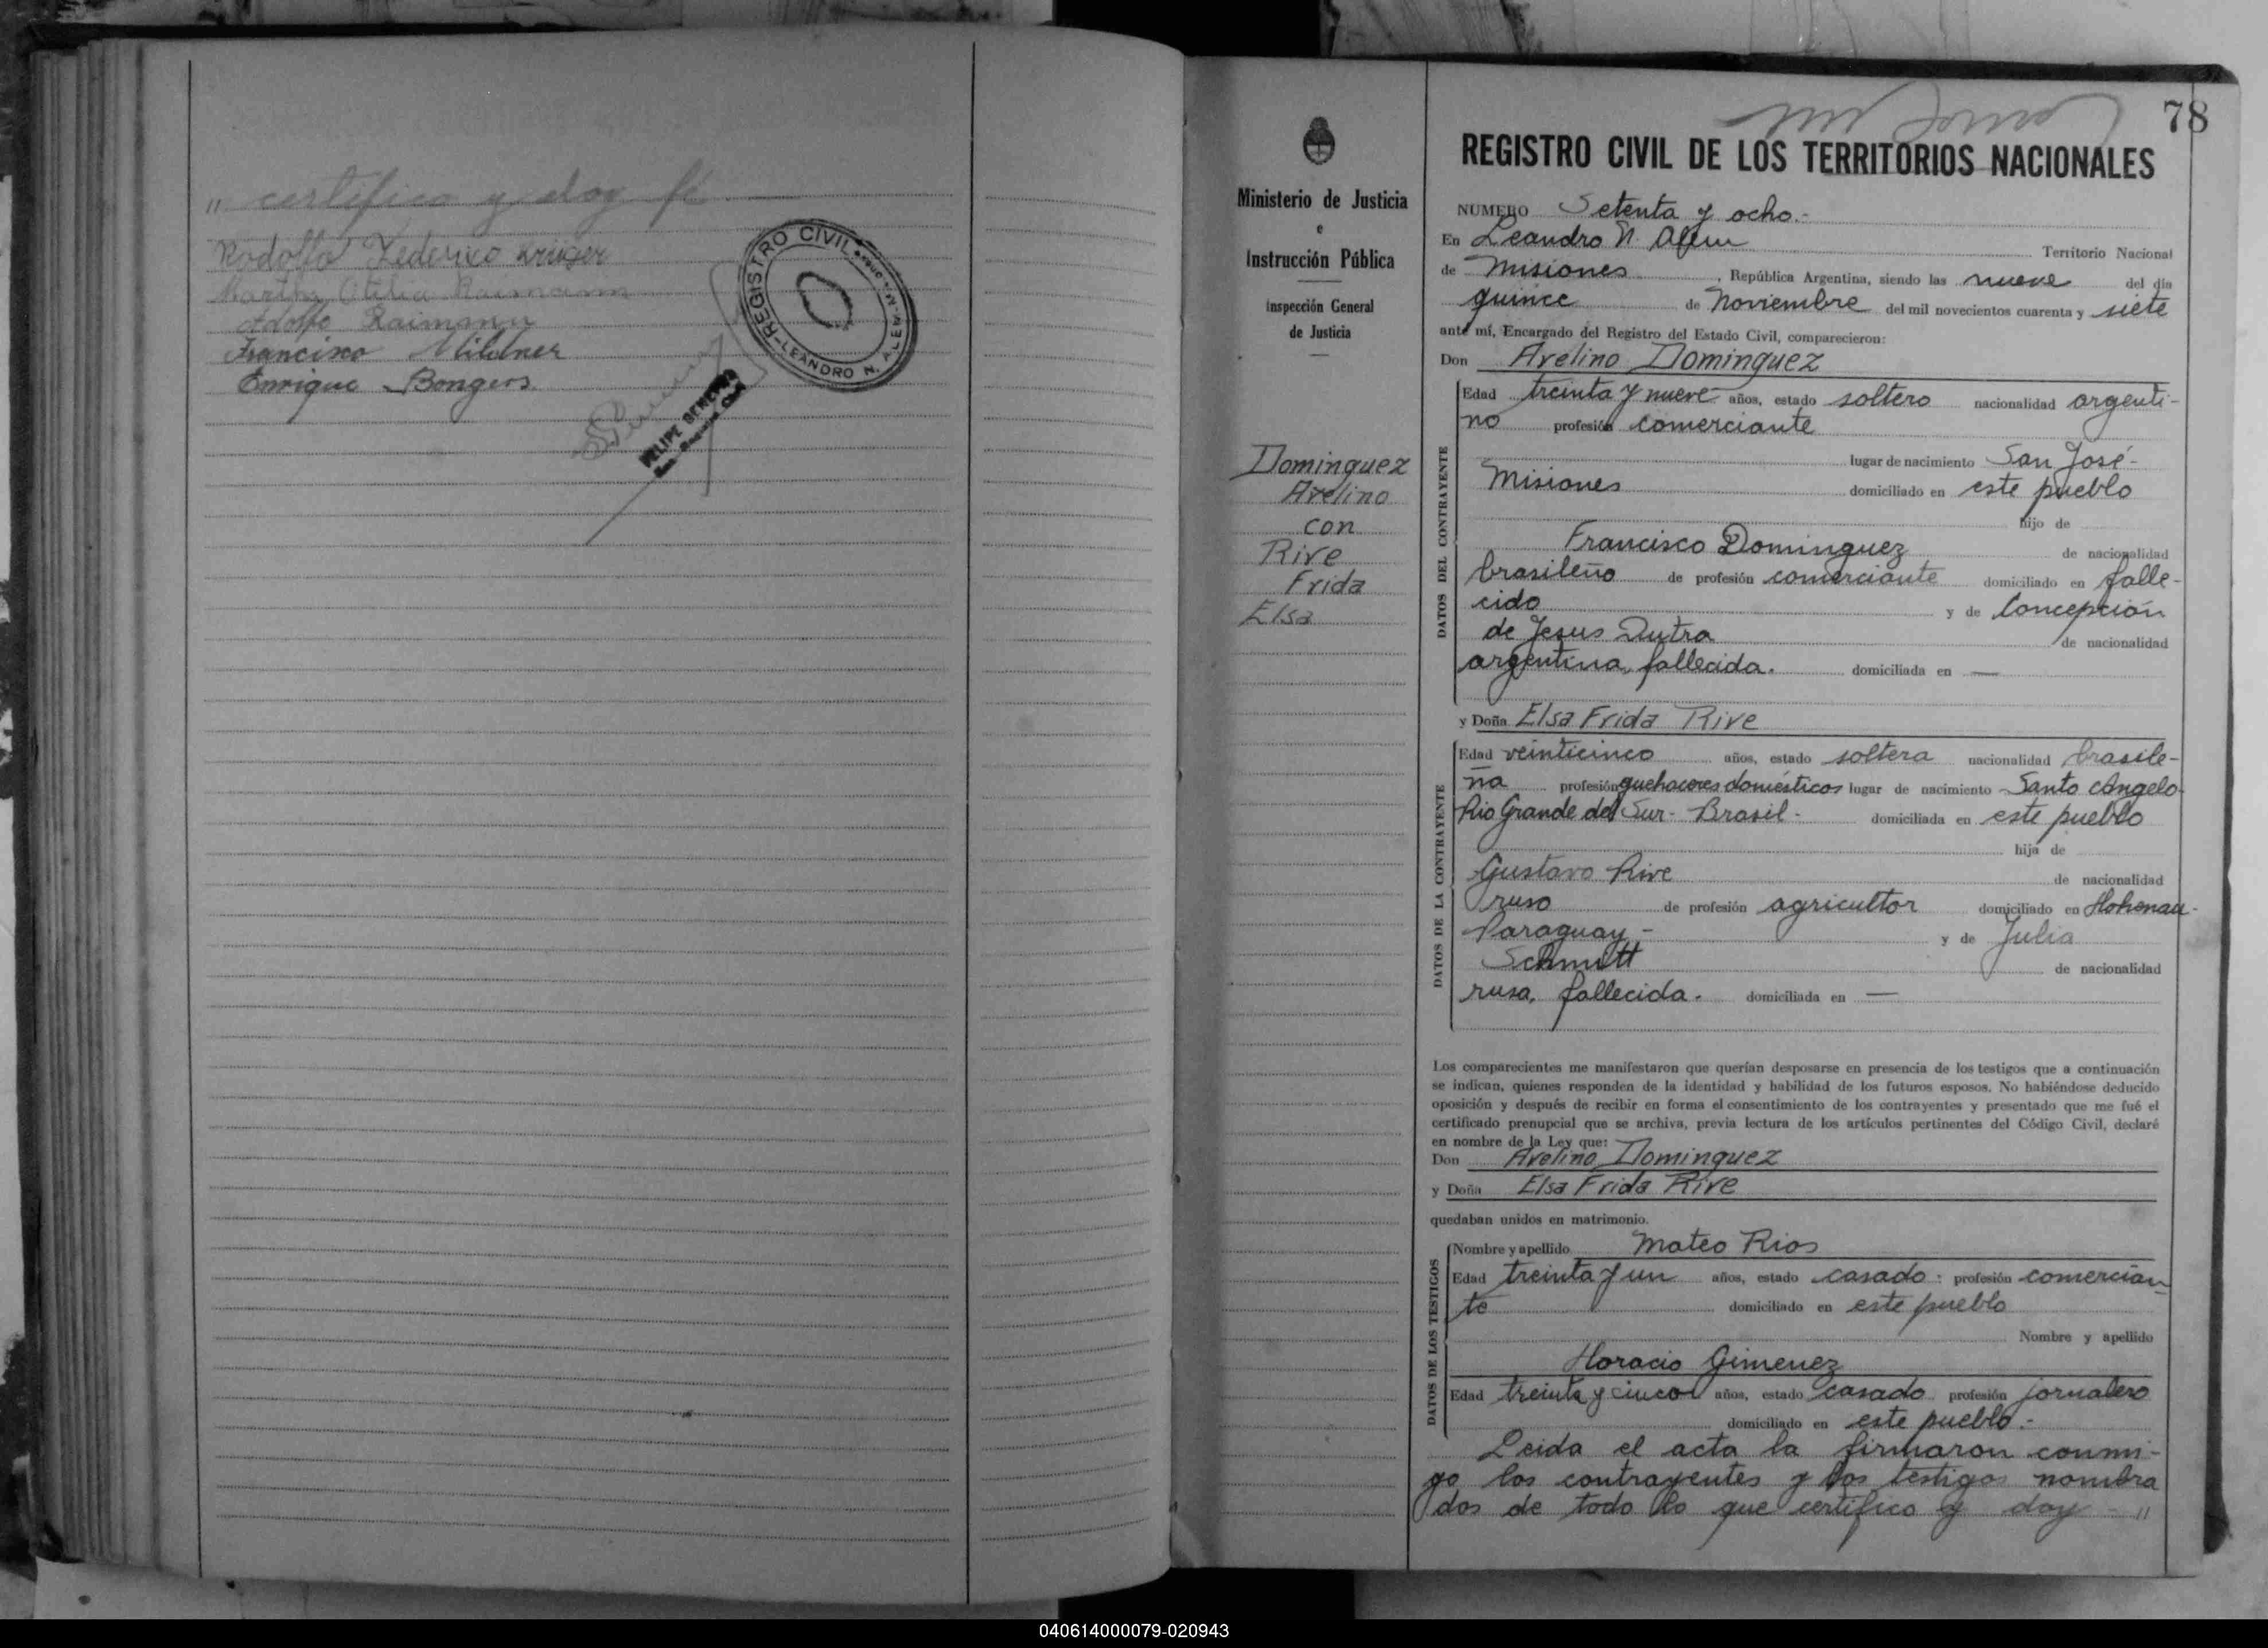 " certifico y doy fé
Rodolfo Federico Krüger
Martha Otilia Raimann
Adolfo Raimann
Francisco Mildner
Enrique Bongers
REGISTRO CIVIL
LEANDRO N. ALEM
FELIPE
78
REGISTRO CIVIL DE LOS TERRITORIOS NACIONALES
Ministerio de Justicia
e
Instrucción Pública
Inspección General
de Justicia
Dominguez
Avelino
con
Rive
Frida
Elsa
NUMERO Setenta y ocho.-
En Leandro N. Alem Territorio Nacional
de Misiones, República Argentina, siendo las nueve del día
quince de Noviembre del mil novecientos cuarenta y siete
ante mí, Encargado del Registro del Estado Civil, comparecieron:
Don Avelino Dominguez
DATOS DEL CONTRAYENTE
Edad treinta y nueve años, estado soltero nacionalidad argenti-
no profesión comerciante
lugar de nacimiento San José-
Misiones domiciliado en este pueblo
hijo de
Francisco Dominguez de nacionalidad
brasileño de profesión comerciante domiciliado en falle-
cido y de Concepción
de Jesus Dutra de nacionalidad
argentina, fallecida. domiciliada en —
y Doña Elsa Frida Rive
DATOS DE LA CONTRAYENTE
Edad veinticinco años, estado soltera nacionalidad brasile-
ña profesión quehaceres domésticos lugar de nacimiento Santo Angelo-
Rio Grande del Sur- Brasil- domiciliada en este pueblo
hija de
Gustavo Rive de nacionalidad
ruso de profesión agricultor domiciliado en Hohenau-
Paraguay- y de Julia
Schmitt de nacionalidad
rusa, fallecida. domiciliada en —
Los comparecientes me manifestaron que querían desposarse en presencia de los testigos que a continuación
se indican, quienes responden de la identidad y habilidad de los futuros esposos. No habiéndose deducido
oposición y después de recibir en forma el consentimiento de los contrayentes y presentado que me fué el
certificado prenupcial que se archiva, previa lectura de los artículos pertinentes del Código Civil, declaré
en nombre de la Ley que:
Don Avelino Dominguez
y Doña Elsa Frida Rive
quedaban unidos en matrimonio.
DATOS DE LOS TESTIGOS
Nombre y apellido Mateo Rios
Edad treinta y un años, estado casado: profesión comercian
te domiciliado en este pueblo
Nombre y apellido
Horacio Gimenez
Edad treinta y cinco años, estado casado profesión jornalero
domiciliado en este pueblo.-
Leida el acta la firmaron conmi-
go los contrayentes y los testigos nombra
dos de todo lo que certifico y doy "
040614000079-020943